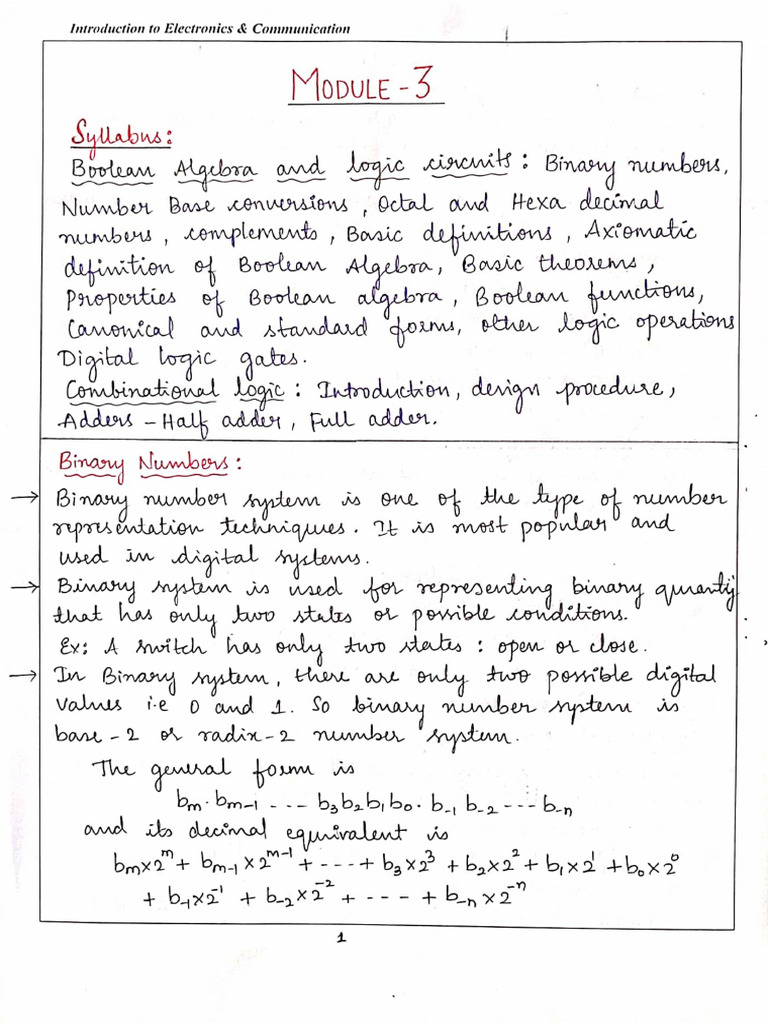 Introduction to Electronics & Communication
MODULE - 3
Syllabus:
Boolean Algebra and logic circuits : Binary numbers,
Number Base conversions , Octal and Hexa decimal
numbers , complements , Basic definitions , Axiomatic
definition of Boolean Algebra, Basic theorems ,
Properties of Boolean algebra , Boolean functions,
Canonical and standard forms, other logic operations
Digital logic gates.
Combinational logic : Introduction, design procedure,
Adders - Half adder , Full adder.
Binary Numbers:
→ Binary number system is one of the type of number
representation techniques. It is most popular and
used in digital systems.
→ Binary system is used for representing binary quantity
that has only two states or possible conditions.
Ex: A switch has only two states : open or close.
→ In Binary system, there are only two possible digital
values i.e 0 and 1. So binary number system is
base-2 or radix-2 number system.
The general form is
bₘ.bₘ₋₁ --- b₃b₂b₁b₀.b₋₁ b₋₂ --- b₋ₙ
and its decimal equivalent is
bₘ×2ᵐ + bₘ₋₁×2ᵐ⁻¹ + ---- + b₃×2³ + b₂×2² + b₁×2¹ + b₀×2⁰
+ b₋₁×2⁻¹ + b₋₂×2⁻² + --- + b₋ₙ×2⁻ⁿ
1